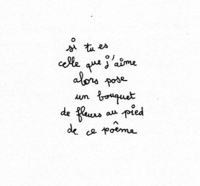 si tu es
celle que j'aime
alors pose
un bouquet
de fleurs au pied
de ce poème